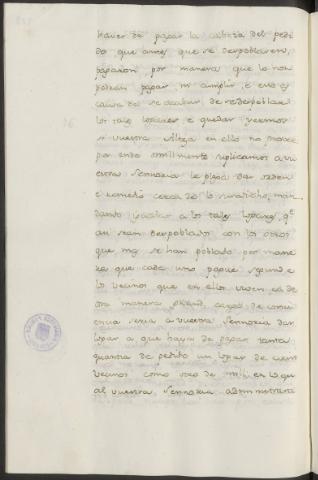 haver de pagar la cabeza del pedi
do que antes que se despoblaren,
pagaron por manera que lo non
podran pagar ni cumplir, e esto es
causa de se acabar de redespoblar
los tales logares e quedar yermos
si vuestra Alteza en ello no provee
por ende omillmente suplicamos a vu
estra Sennoria le plega dar orden
e remedio cerca de lo suso dicho, man
dando igualar a los tales logares qe.
ansi sean despoblados con los otros
que mas se han poblado por mane
ra que cada uno pague segund
los vecinos que en ello viven ca de
otra manera grand cargo de conci
encia seria a vuestra Sennoria dar
logar a que haya de pagar tanta
quantia de pedido un logar de cient
vecinos como otro de mill en lo qu
al vuestra Sennoria administrara